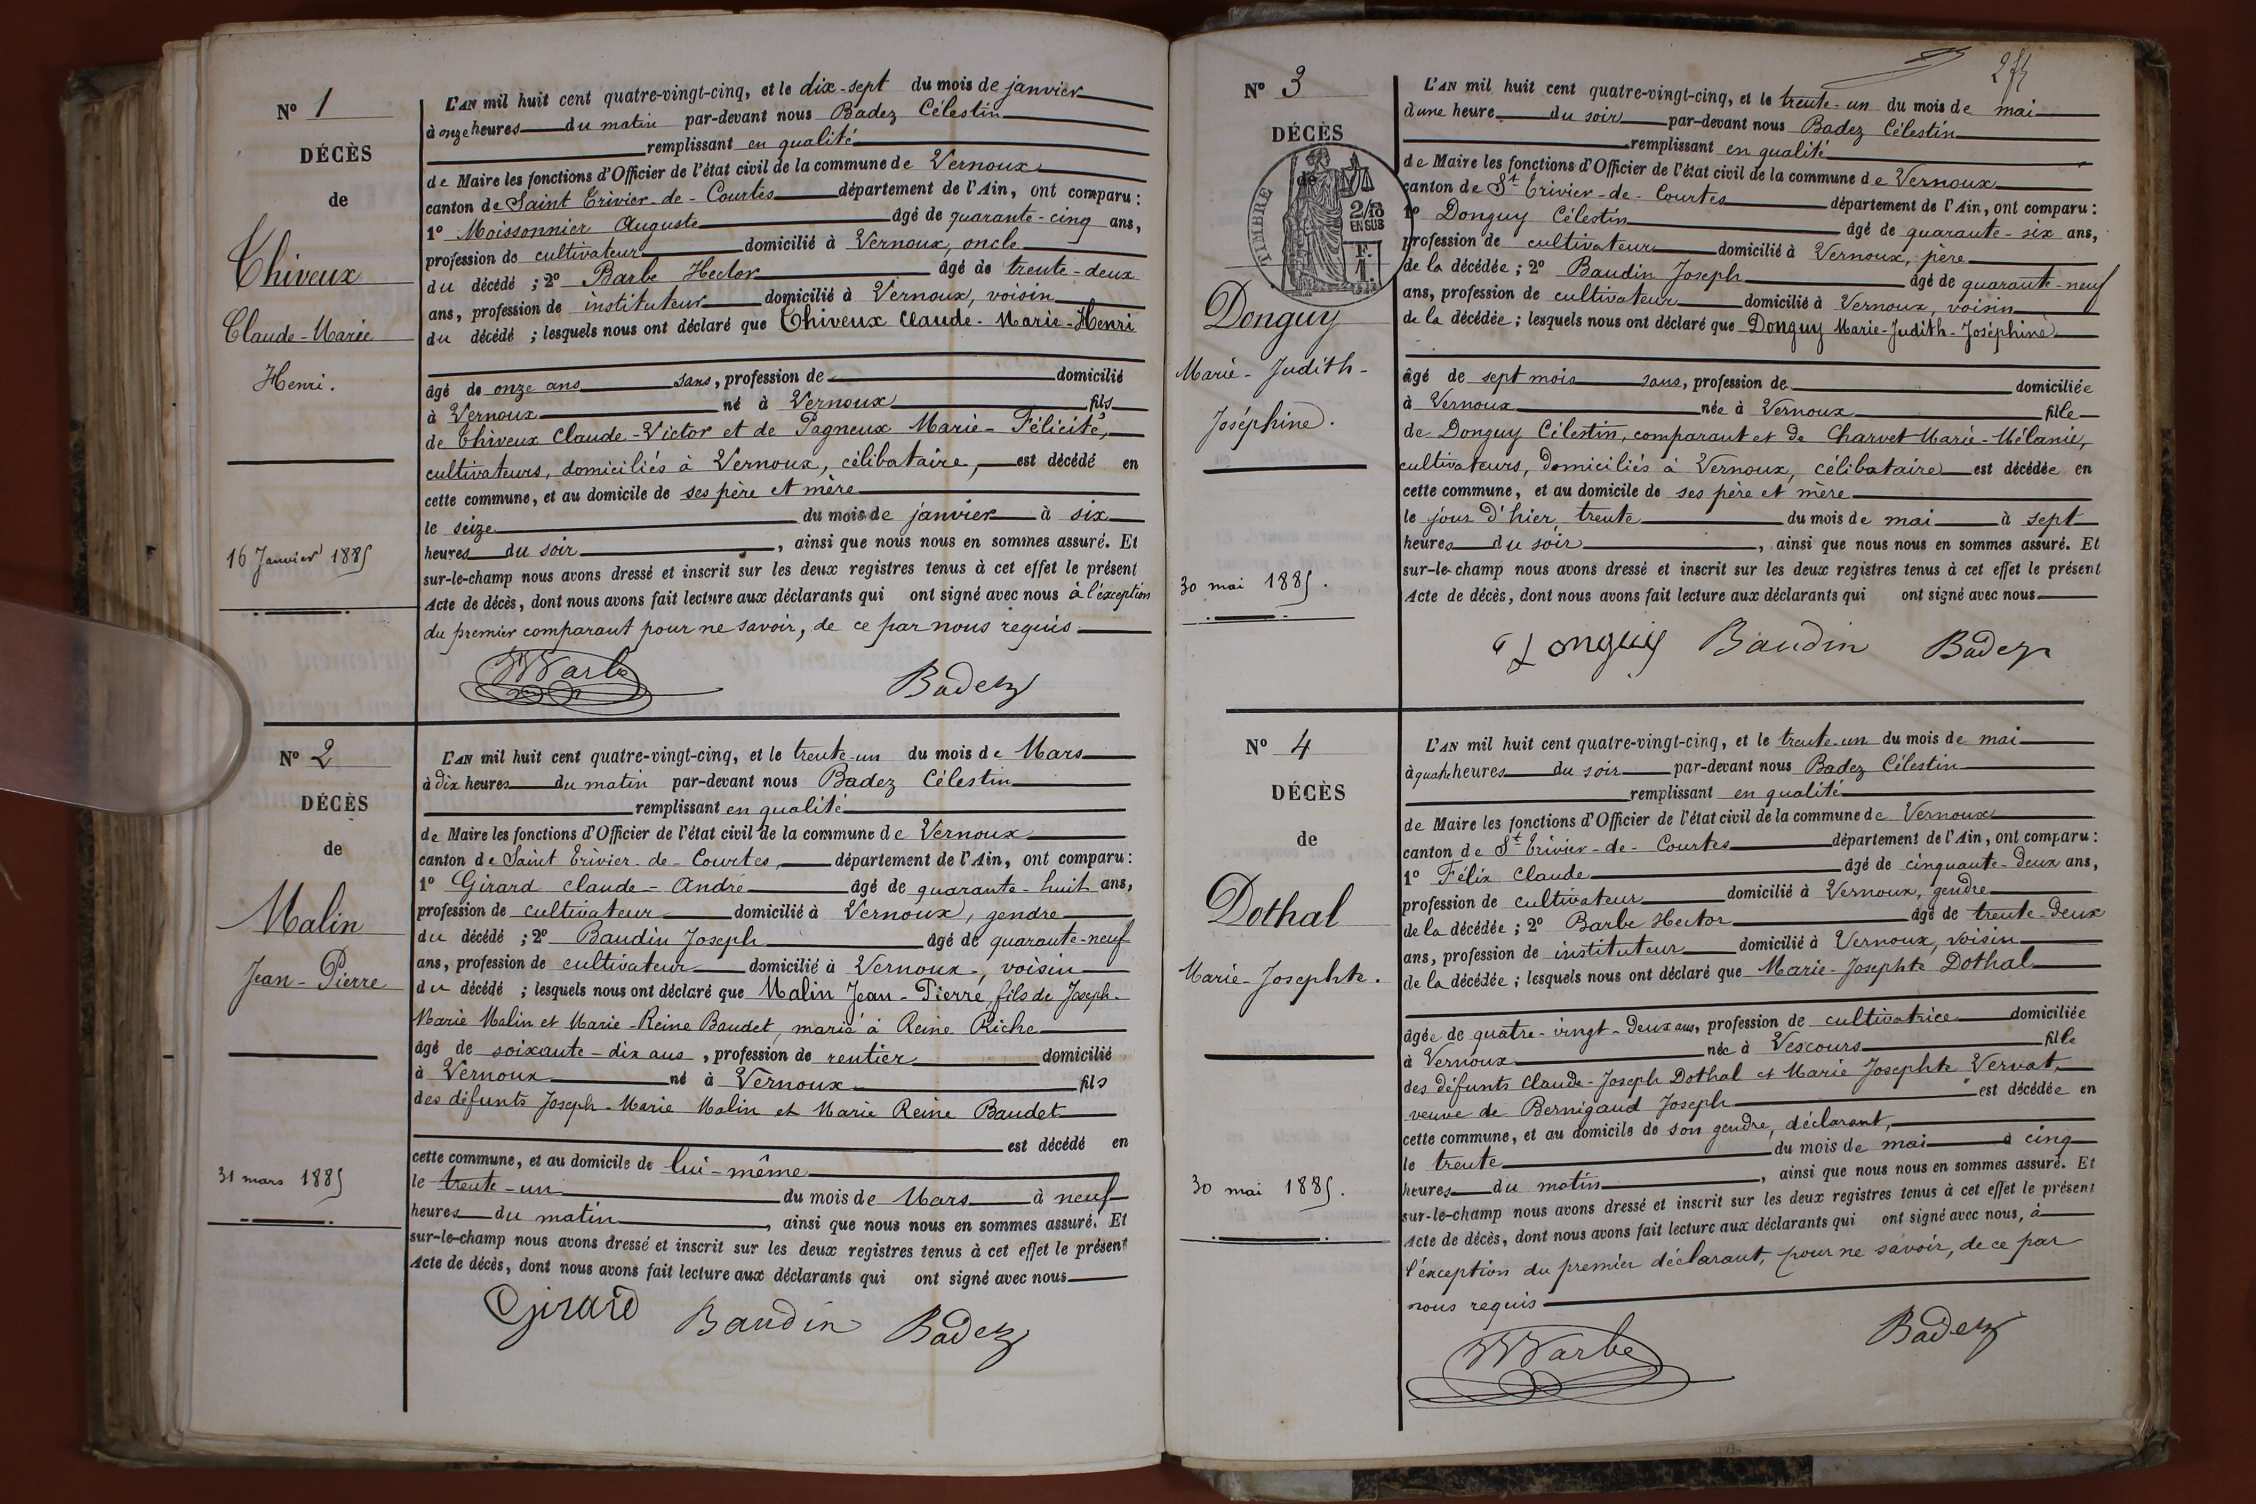 N° 1
DÉCÈS
de
Thiveux
Claude-Marie
Henri.
16 Janvier 1885
L'AN mil huit cent quatre-vingt-cinq, et le dix-sept du mois de janvier
à onze heures du matin par-devant nous Badez Célestin
remplissant en qualité
de Maire les fonctions d'Officier de l'état civil de la commune de Vernoux
canton de Saint Trivier-de-Courtes département de l'Ain, ont comparu :
1° Moissonnier Auguste âgé de quarante-cinq ans,
profession de cultivateur domicilié à Vernoux, oncle
du décédé ; 2° Barbe Hector âgé de trente-deux
ans, profession de instituteur domicilié à Vernoux, voisin
du décédé ; lesquels nous ont déclaré que Thiveux Claude-Marie-Henri
âgé de onze ans sans, profession de domicilié
à Vernoux né à Vernoux fils
de Thiveux Claude-Victor et de Pagneux Marie-Félicité,
cultivateurs, domiciliés à Vernoux, célibataire, est décédé en
cette commune, et au domicile de ses père et mère
le seize du mois de janvier à six
heures du soir, ainsi que nous nous en sommes assuré. Et
sur-le-champ nous avons dressé et inscrit sur les deux registres tenus à cet effet le présent
Acte de décès, dont nous avons fait lecture aux déclarants qui ont signé avec nous à l'éxception
du premier comparant pour ne savoir, de ce par nous requis.
HBarbe Badez
N° 2
DÉCÈS
de
Malin
Jean-Pierre
31 mars 1885
L'AN mil huit cent quatre-vingt-cinq, et le trente-un du mois de Mars
à dix heures du matin par-devant nous Badez Célestin
remplissant en qualité
de Maire les fonctions d'Officier de l'état civil de la commune de Vernoux
canton de Saint Trivier-de-Courtes, département de l'Ain, ont comparu :
1° Girard Claude-André âgé de quarante-huit ans,
profession de cultivateur domicilié à Vernoux, gendre
du décédé ; 2° Baudin Joseph âgé de quarante-neuf
ans, profession de cultivateur domicilié à Vernoux, voisin
du décédé ; lesquels nous ont déclaré que Malin Jean-Pierre, fils de Joseph-
Marie Malin et Marie-Reine Baudet, marié à Reine Riche
âgé de soixante-dix ans, profession de rentier domicilié
à Vernoux né à Vernoux fils
des défunts Joseph-Marie Malin et Marie Reine Baudet
est décédé en
cette commune, et au domicile de lui-même
le trente-un du mois de Mars à neuf
heures du matin, ainsi que nous nous en sommes assuré. Et
sur-le-champ nous avons dressé et inscrit sur les deux registres tenus à cet effet le présent
Acte de décès, dont nous avons fait lecture aux déclarants qui ont signé avec nous
Girard Baudin Badez
N° 3
DÉCÈS
de
TIMBRE
2/10
EN SUS
F.
1.
Donguy
Marie-Judith-
Joséphine.
30 mai 1885.
L'AN mil huit cent quatre-vingt-cinq, et le trente-un du mois de mai
d'une heure du soir par-devant nous Badez Célestin
remplissant en qualité
de Maire les fonctions d'Officier de l'état civil de la commune de Vernoux
canton de St Trivier-de-Courtes département de l'Ain, ont comparu :
1° Donguy Célestin âgé de quarante-six ans,
profession de cultivateur domicilié à Vernoux, père
de la décédée ; 2° Baudin Joseph âgé de quarante-neuf
ans, profession de cultivateur domicilié à Vernoux, voisin
de la décédée ; lesquels nous ont déclaré que Donguy Marie-Judith-Joséphine
âgé de sept mois sans, profession de domiciliée
à Vernoux née à Vernoux fille
de Donguy Célestin, comparant et de Charvet Marie-Mélanie,
cultivateurs, domiciliés à Vernoux, célibataire est décédée en
cette commune, et au domicile de ses père et mère
le jour d'hier trente du mois de mai à sept
heures du soir, ainsi que nous nous en sommes assuré. Et
sur-le-champ nous avons dressé et inscrit sur les deux registres tenus à cet effet le présent
Acte de décès, dont nous avons fait lecture aux déclarants qui ont signé avec nous
Donguy Baudin Badez
N° 4
DÉCÈS
de
Dothal
Marie-Josephte.
30 mai 1885.
L'AN mil huit cent quatre-vingt-cinq, et le trente-un du mois de mai
à quatre heures du soir par-devant nous Badez Célestin
remplissant en qualité
de Maire les fonctions d'Officier de l'état civil de la commune de Vernoux
canton de St Trivier-de-Courtes département de l'Ain, ont comparu :
1° Félix Claude âgé de cinquante-deux ans,
profession de cultivateur domicilié à Vernoux, gendre
de la décédée ; 2° Barbe Hector âgé de trente-deux
ans, profession de instituteur domicilié à Vernoux, voisin
de la décédée ; lesquels nous ont déclaré que Marie-Josephte Dothal
âgée de quatre-vingt-deux ans, profession de cultivatrice domiciliée
à Vernoux née à Vescours fille
des défunts Claude-Joseph Dothal et Marie Josephte Vervat,
veuve de Bernigaud Joseph est décédée en
cette commune, et au domicile de son gendre, déclarant,
le trente du mois de mai à cinq
heures du matin, ainsi que nous nous en sommes assuré. Et
sur-le-champ nous avons dressé et inscrit sur les deux registres tenus à cet effet le présent
Acte de décès, dont nous avons fait lecture aux déclarants qui ont signé avec nous, à
l'éxception du premier déclarant, pour ne savoir, de ce par
nous requis
HBarbe Badez